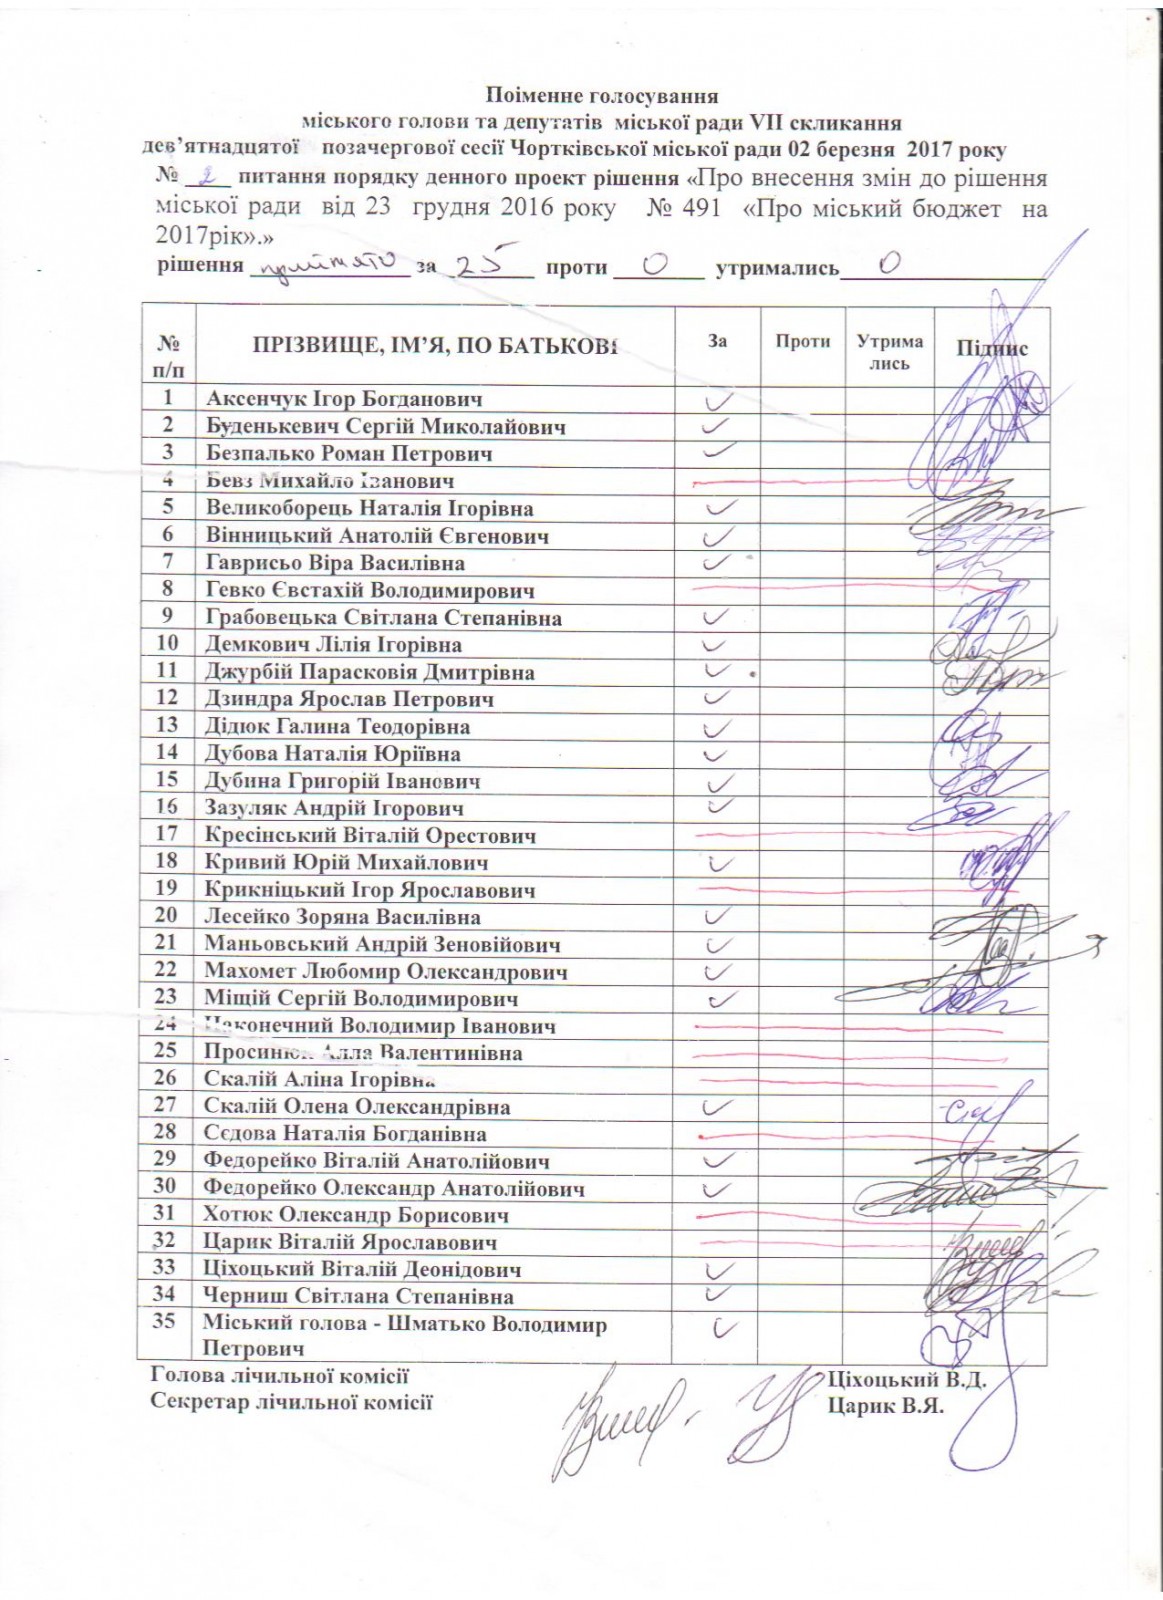 Поіменне голосування
міського голови та депутатів міської ради VII скликання
дев’ятнадцятої позачергової сесії Чортківської міської ради 02 березня 2017 року
№ 2 питання порядку денного проект рішення «Про внесення змін до рішення
міської ради від 23 грудня 2016 року № 491 «Про міський бюджет на
2017рік».»
рішення прийнято за 25 проти 0 утримались 0
№ п/п ПРІЗВИЩЕ, ІМ’Я, ПО БАТЬКОВІ За Проти Утрима лись Підпис
1 Аксенчук Ігор Богданович
2 Буденькевич Сергій Миколайович
3 Безпалько Роман Петрович
4 Бевз Михайло Іванович
5 Великоборець Наталія Ігорівна
6 Вінницький Анатолій Євгенович
7 Гаврисьо Віра Василівна
8 Гевко Євстахій Володимирович
9 Грабовецька Світлана Степанівна
10 Демкович Лілія Ігорівна
11 Джурбій Парасковія Дмитрівна
12 Дзиндра Ярослав Петрович
13 Дідюк Галина Теодорівна
14 Дубова Наталія Юріївна
15 Дубина Григорій Іванович
16 Зазуляк Андрій Ігорович
17 Кресінський Віталій Орестович
18 Кривий Юрій Михайлович
19 Крикніцький Ігор Ярославович
20 Лесейко Зоряна Василівна
21 Маньовський Андрій Зеновійович
22 Махомет Любомир Олександрович
23 Міщій Сергій Володимирович
24 Наконечний Володимир Іванович
25 Просинюк Алла Валентинівна
26 Скалій Аліна Ігорівна
27 Скалій Олена Олександрівна
28 Сєдова Наталія Богданівна
29 Федорейко Віталій Анатолійович
30 Федорейко Олександр Анатолійович
31 Хотюк Олександр Борисович
32 Царик Віталій Ярославович
33 Ціхоцький Віталій Деонідович
34 Черниш Світлана Степанівна
35 Міський голова - Шматько Володимир
Петрович
Голова лічильної комісії Ціхоцький В.Д.
Секретар лічильної комісії Царик В.Я.